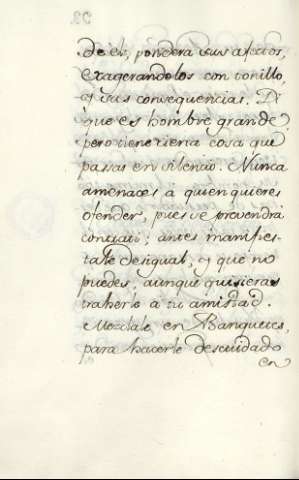 de el, pondera sus afectos,
exagerandolos con tonillo,
y sus consequencias. Di
que es hombre grande
pero tiene cierta cosa que
passas en silencio. Nunca
amenaces à quien quieres
ofender, pues se prevendrà
contra ti; antes manifies-
tate desigual, y que no
puedes, aunque quisieras
traherle à tu amistad.
Mezclate en Banquetes,
para hacerle descuidado
en